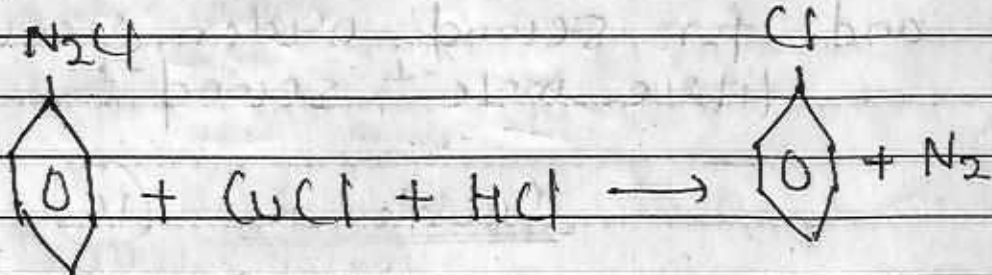 N2Cl Cl
O + CuCl + HCl → O + N2